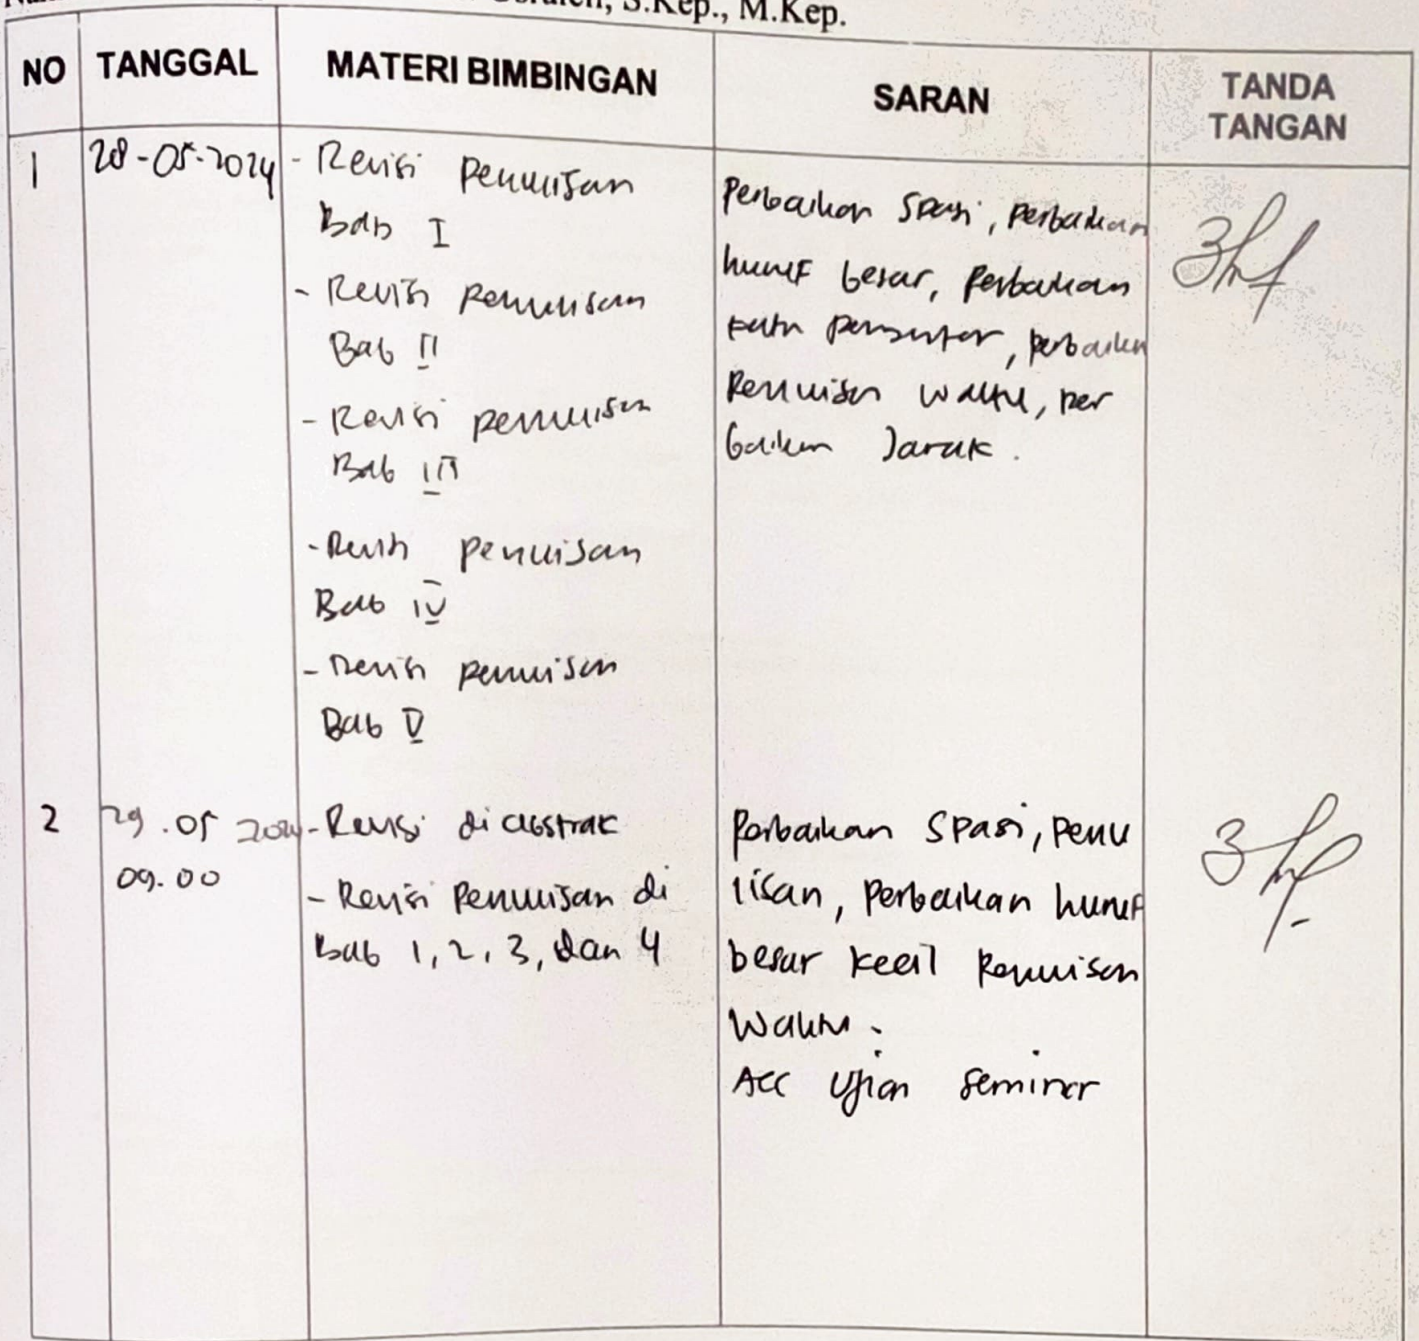 S.Kep., M.Kep.
NO TANGGAL MATERI BIMBINGAN SARAN TANDA TANGAN
1 28-05-2024
- Revisi penulisan
Bab I
- Revisi penulisan
Bab II
- Revisi penulisan
Bab III
- Revisi penulisan
Bab IV
- Revisi penulisan
Bab V
Perbaikan spasi, perbaikan
huruf besar, perbaikan
kata pengantar, perbaikan
penulisan waktu, per
baikan Jarak.
2 29.05 2024
09.00
- Revisi di abstrak
- Revisi penulisan di
Bab 1, 2, 3, dan 4
Perbaikan spasi, penu
lisan, perbaikan huruf
besar kecil penulisan
waktu.
Acc Ujian Seminar